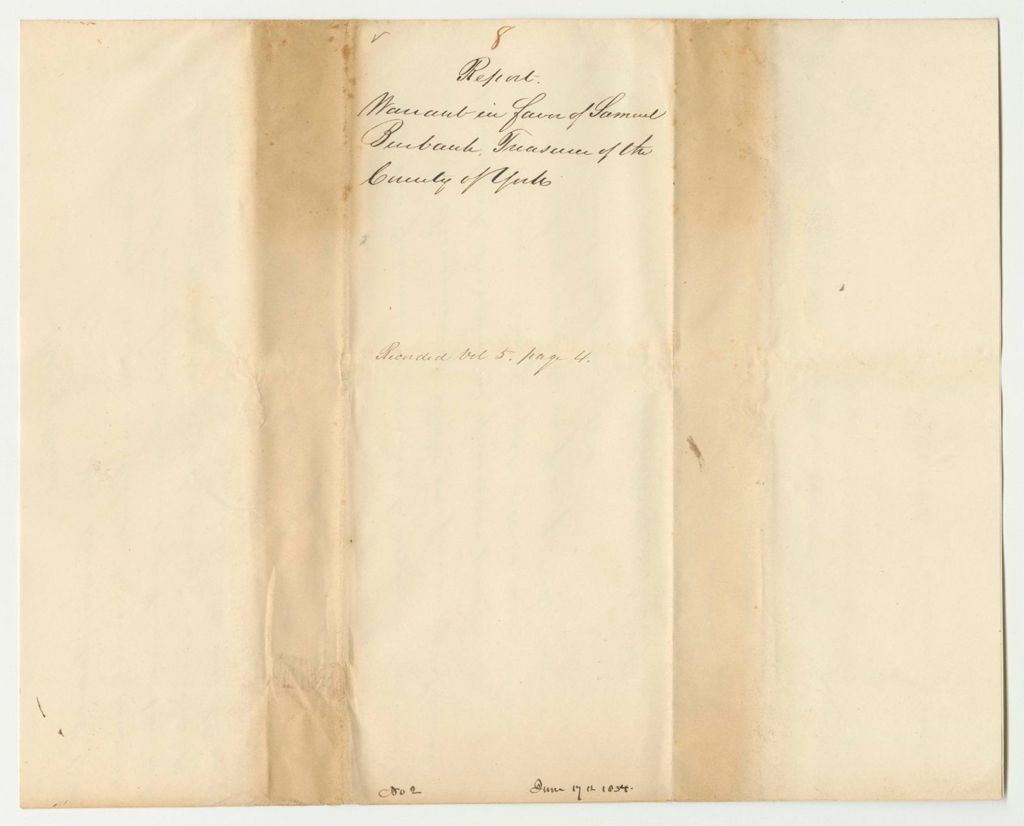 8
Report.
Warrant in favor of Samuel
Burbank, Treasurer of the
County of York
Recorded Vol 5. page 4.
No 2
June 17th